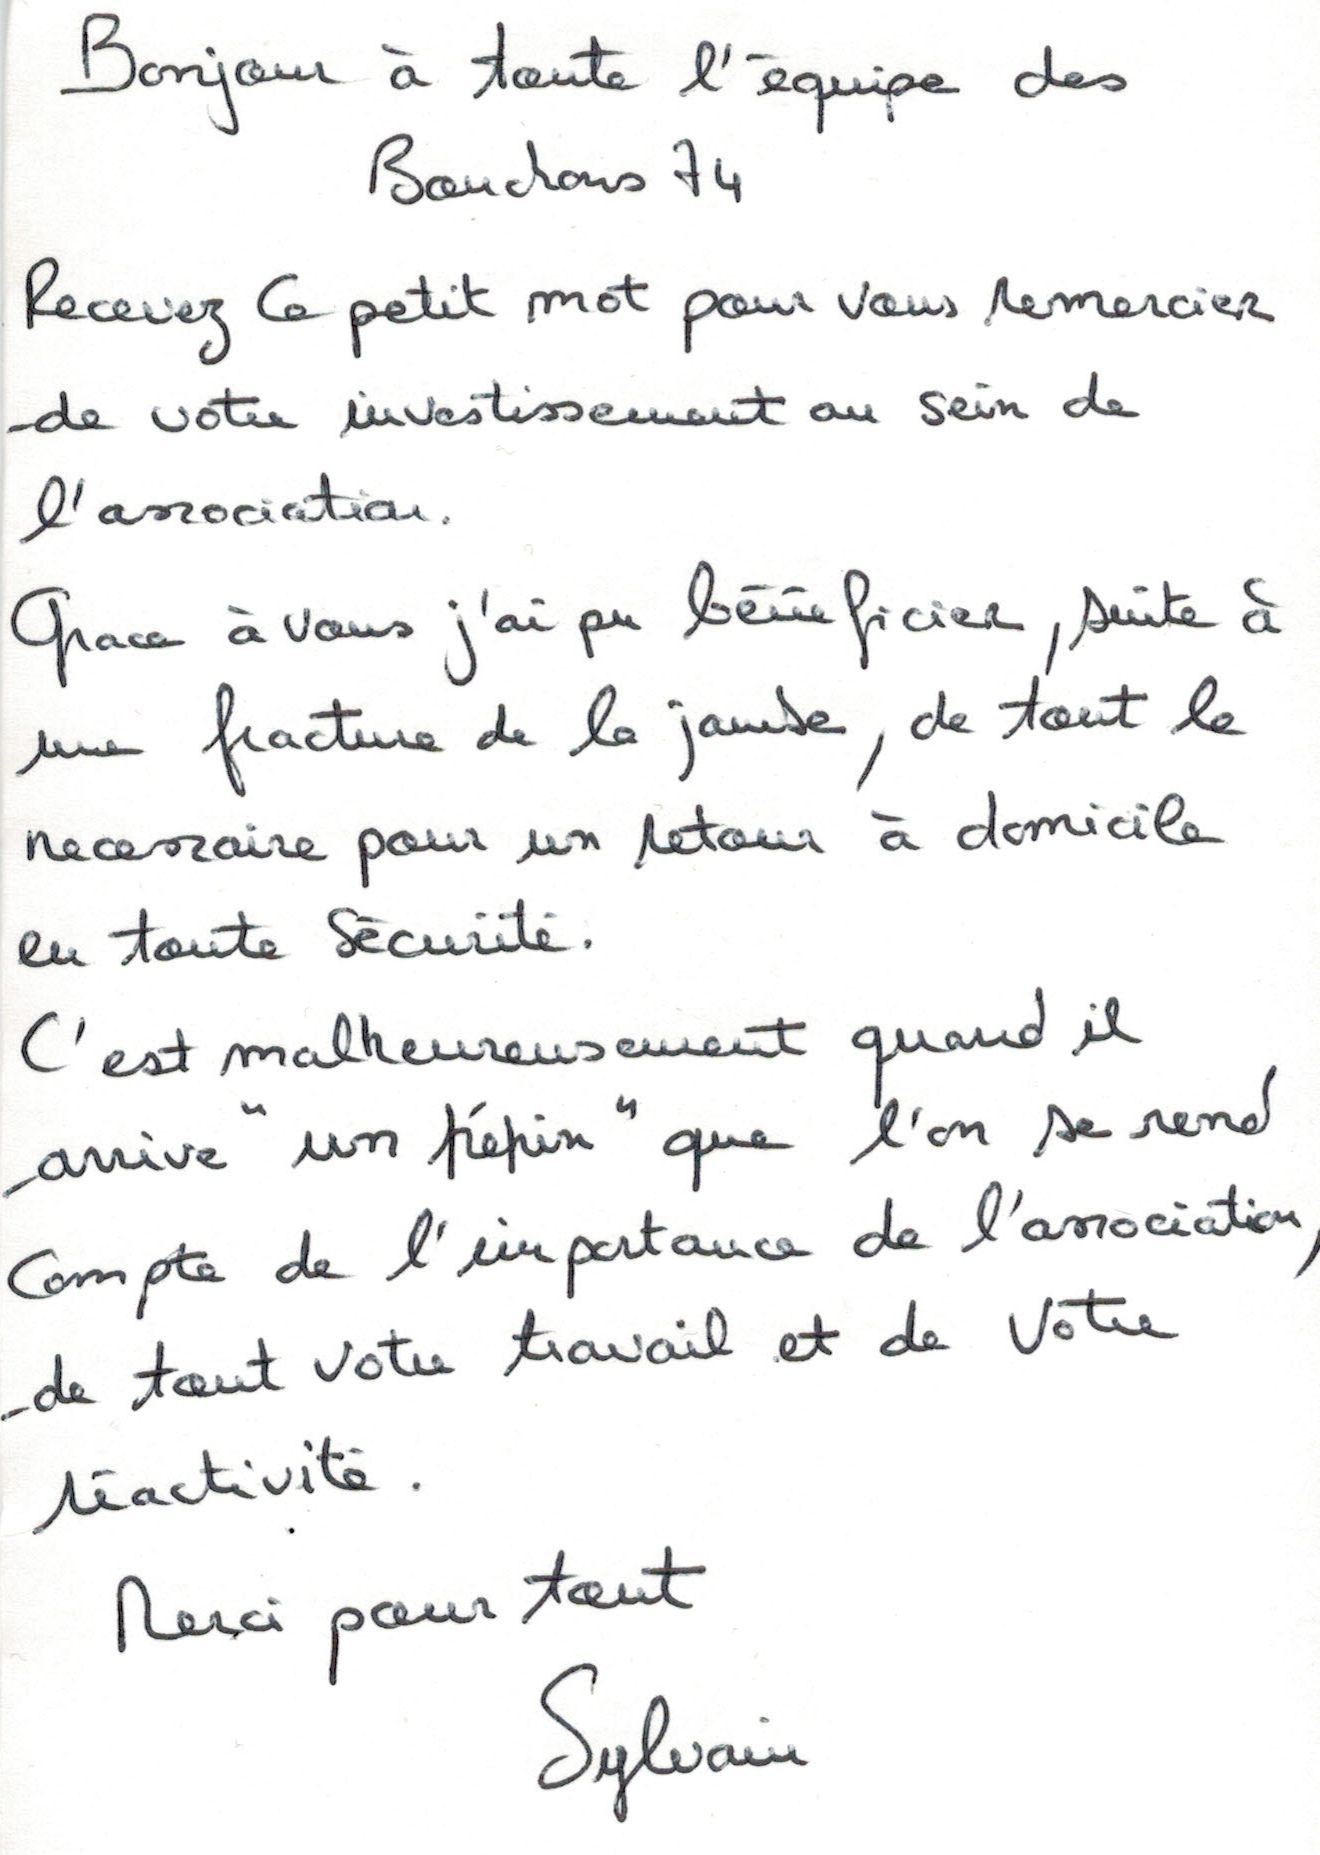 Bonjour à toute l'équipe des
Bouchons 74
Recevez ce petit mot pour vous remercier
de votre investissement au sein de
l'association.
Grace à vous j'ai pu bénéficier, suite à
une fracture de la jambe, de tout le
necessaire pour un retour à domicile
en toute sécurité.
C'est malheureusement quand il
arrive "un pépin" que l'on se rend
compte de l'importance de l'association,
de tout votre travail et de votre
réactivité.
Merci pour tout
Sylvain